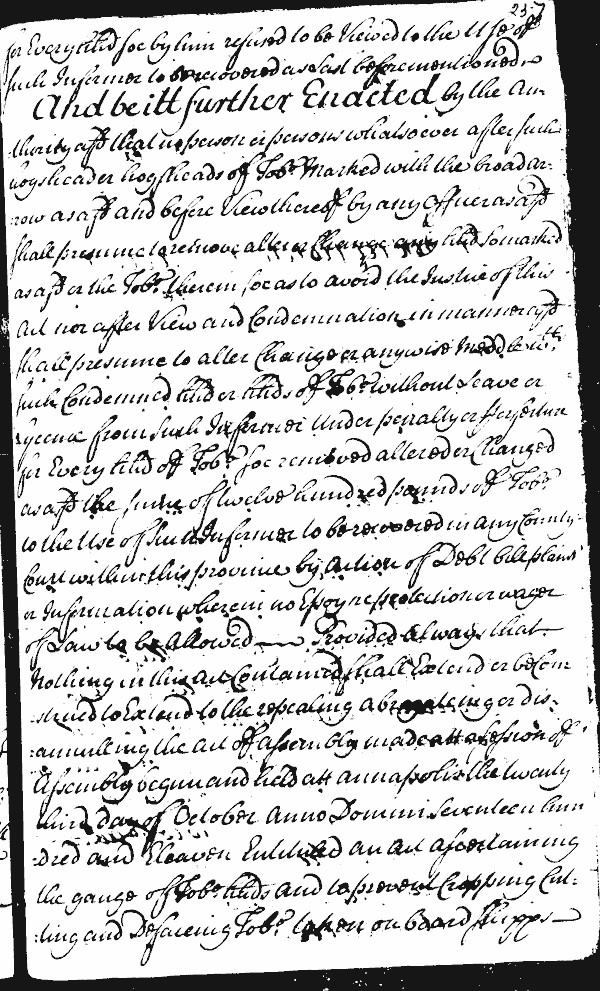 237
for Every Hhd soe by him refused to be Viewed to the Use off
such Informer to be recovered as last beforementioned
And be itt further Enacted by the Au-
thority afsd that no person or persons whatsoever after such
hogshead er hogsheads off Tobo Marked with the broad ar-
row as afsd and before View thereoff by any Officer as afsd
shall presume to remove alter or Change any Hhd so marked
as afsd or the Tobo therein soe as to avoid the Justice of this
Act nor after View and Condemnation in manner afsd
shall presume to alter Change or anywise Meddle wth
such Condemned Hhd or Hhds off Tobo without Leave or
lycence from such Informer Under penalty or forfeiture
for Every Hhd off Tobo soe removed altered or Changed
as afsd the sume of twelve hundred pounds off Tobo
to the Use of such Informer to be recovered in any County
Court within this province by action of Debt bill plaint
or Information wherein no Essoyne protection or wager
of Law to be allowed Provided always that
Nothing in this act Contained shall Extend or be Con-
strued to Extend to the repealing abrogateing or dis-
annulling the act off assembly made att a session off
Assembly begun and held att annapolis the twenty
third day of October Anno Domini Seventeen hun
dred and Eleaven Entituled an act ascertaining
the gauge of Tobo Hhds and to prevent Cropping Cut-
ting and Defaceing Tobo taken on board shipps